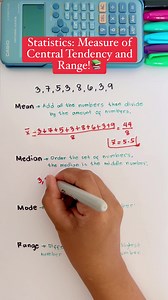 Statistics: Measure of
Central Tendency and
Range!📚
3,7,5,3,8,6,3,9
Mean → Add all the numbers then divide
by the amount of numbers.
x̄ = 3+7+5+3+8+6+3+9 = 44
8 8
x̄ = 5.5
Median → Order the set of numbers,
the median is the middle number.
3,
Mode
Range →